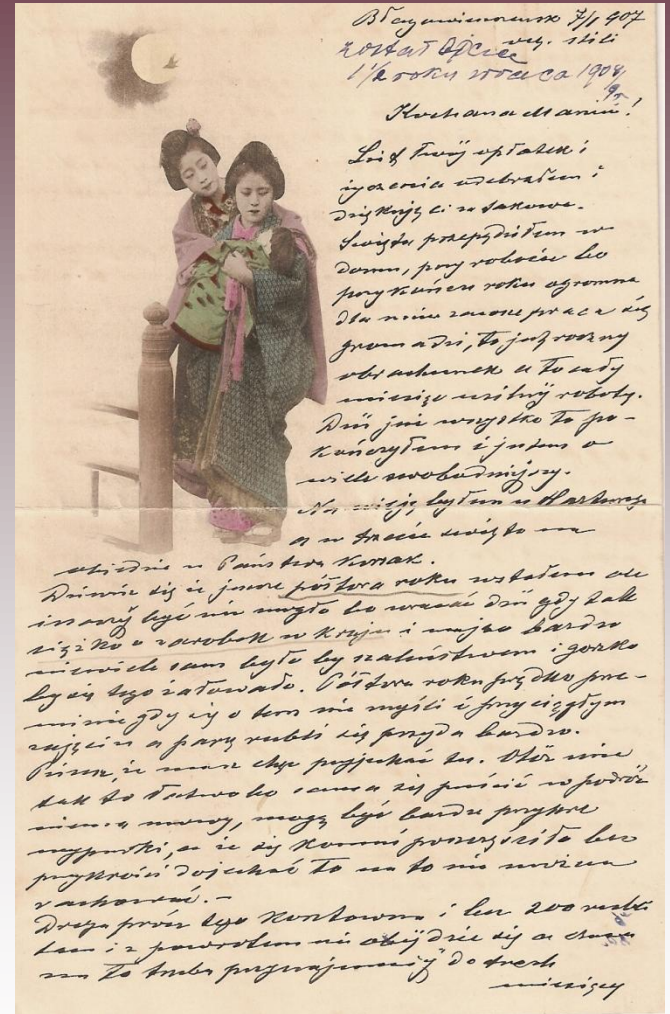 Błagowieszczensk 7/I 907
weg. stili
został Ojciec
1 1/2 roku wraca 1908/
9r
Kochana Maniu!
List Twój opłatek i
życzenia odebrałem i
dziękuję ci za takowe.
Święta przepędziłem w
domu, przy robocie bo
przy końcu roku ogromna
dla mnie zawsze praca się
gromadzi, to już roczny
obrachunek a to cały
miesiąc usilnej roboty.
Dziś już wszystko to po-
kończyłem i jestem o
wiele swobodniejszy.
Na wigilję byłem u
a w trzecie święto na
obiedzie u Państwa Kurzak.
Dziwisz się że jeszcze półtora roku zostałem ale
inaczej być nie mogło bo wracać dziś gdy tak
ciężko o zarobek w kraju i mając bardzo
niewiele sam byłoby szaleństwem i gorzko
by się tego żałowało. Półtora roku prędko prze-
minie gdy się o tem nie myśli i przy ciągłym
zajęciu a parę rubli się przyda bardzo.
Piszesz, że masz chęć przyjechać tu. Otóż nie
tak to łatwo bo sama się puścić w podróż
niema mowy, mogą być bardzo przykre
wypadki, a że się komuś poszczęściło bez
przykrości dojechać to na to nie można
rachować. –
Droga prócz tego kosztowna i bez 200 rubli
tam i z powrotem nie obejdzie się a czasu
na to trzeba przynajmniej do trzech
miesięcy